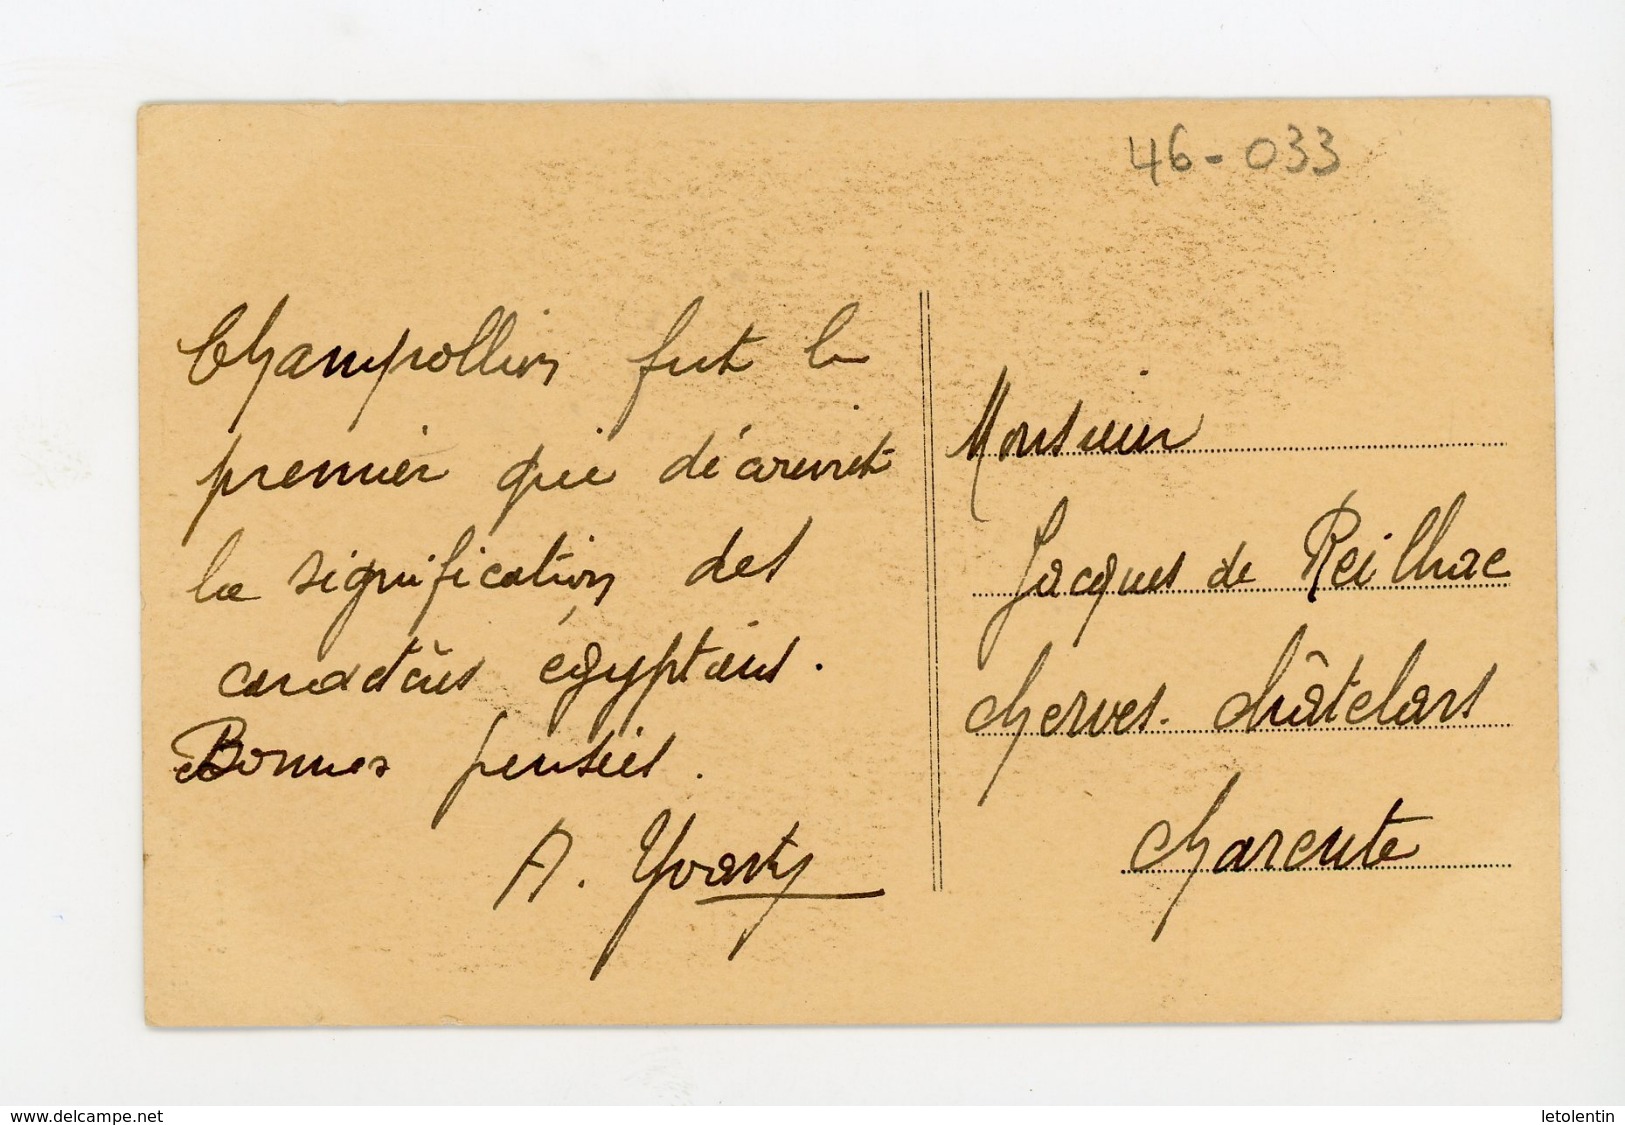 46-033
Champollion fut le
premier qui découvrit
la signification des
caractères égyptiens.
Bonnes pensées.
A. Yvarty
Monsieur
Jacques de Reilhac
Cherves-Châtelars
Charente
www.delcampe.net
letolentin